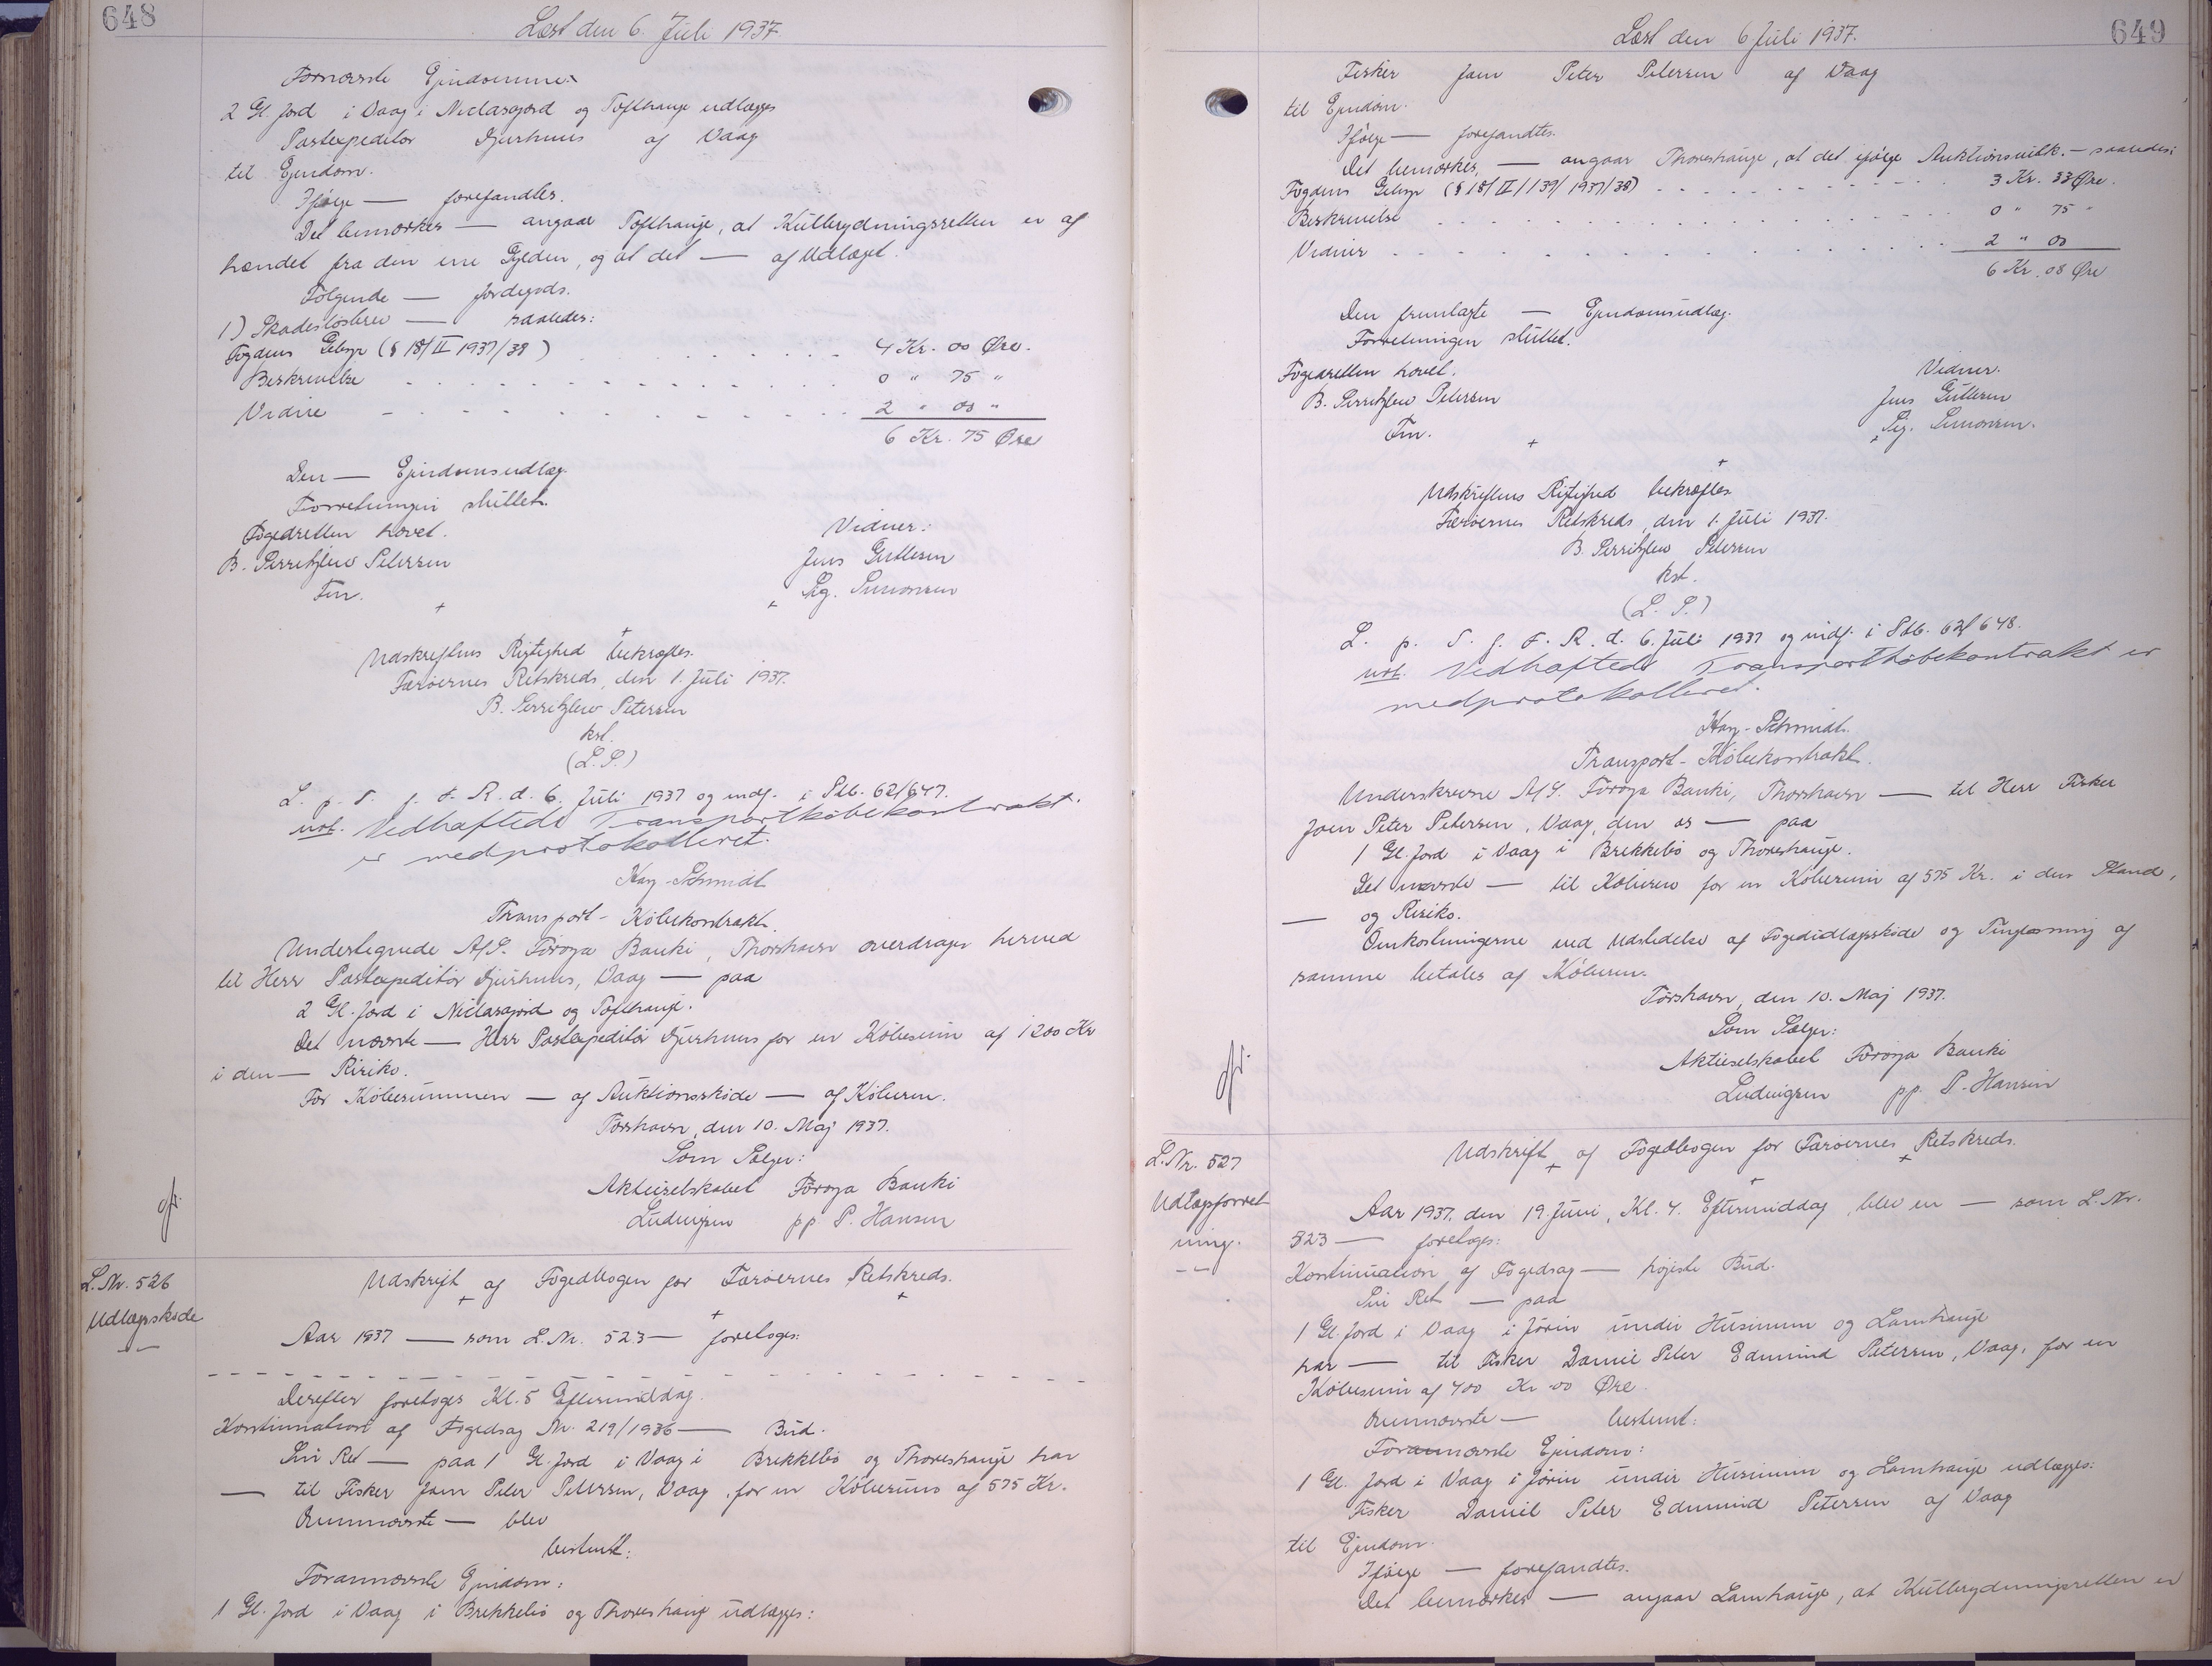 648
Læst den 6. Juli 1937.
Fornævnte Ejendomme:
2 Gl. Jord i Vaag i Niclasgjord og Tofthauge udlægges
Postexpeditør Djurhuus af Vaag
til Ejendom.
Ifølge — forefandtes.
Det bemærkes — angaar Tofthauge, at Kulbrydningsretten er af
hændet fra den ene Gylden, og at det — af Udlæget.
Følgende — Jordegods.
1) Skadesløsbrev — saaledes:
Fogdens Gebyr (§ 18/II 1937/38) 4 Kr. 00 Øre.
Beskrivelse 0 " 75 "
Vidne 2 " 00 "
6 Kr. 75 Øre
Den — Ejendomsudlæg.
Forretningen sluttet.
Fogedretten hævet.
Vidner:
B. Perritzlew Petersen
Jens Guttesen
Fm.
Sig. Simonsen
Udskriftens Rigtighed bekræftes.
Færøernes Retskreds, den 1. Juli 1937.
B. Perritzlew Petersen
kst.
(L.S.)
L. p. T. f. F. R. d. 6. Juli 1937 og indf. i Sdb. 62/647.
not. Vedhæftede Transportkøbekontrakt
er medprotokolleret.
Kay-Schmidt
Transport-Købekontrakt.
Undertegnede A/S. Føroya Banki, Thorshavn overdrager herved
til Herr Postexpeditør Djurhuus, Vaag — paa
2 Gl. Jord i Niclasgjord og Tofthauge.
Det nævnte — Herr Postexpeditør Djurhuus for en Købesum af 1200 Kr
i den — Risiko.
For Købesummen — af Auktionsskøde — af Køberen.
Torshavn, den 10. Maj 1937.
Som Sælger:
Aktieselskabet Føroya Banki
Ludvigsen pp P. Hansen
L. Nr. 526
Udlægsskøde
Udskrift af Fogedbogen for Færøernes Retskreds.
Aar 1937 — som L. Nr. 523 — foretoges:
Derefter foretoges Kl. 5 Eftermiddag.
Kontinuation af Fogedsag Nr. 219/1936 — Bud.
Sin Ret — paa 1 Gl. Jord i Vaag i Brekkebø og Thoreshauge har
— til Fisker Joen Peter Petersen, Vaag, for en Købesum af 575 Kr.
Ovennævnte — blev
bestemt:
Forannævnte Ejendom:
1 Gl. Jord i Vaag i Brekkebø og Thoreshauge udlægges:
649
Læst den 6 Juli 1937.
Fisker Joen Peter Petersen af Vaag
til Ejendom.
Ifølge — forefandtes.
Det bemærkes, — angaar Thoreshauge, at det ifølge Auktionsvilk. — saaledes:
Fogdens Gebyr (§ 18/II/139/1937/38) 3 Kr. 33 Øre.
Beskrivelse 0 " 75 "
Vidner 2 " 00
6 Kr. 08 Øre
Den fremlagte — Ejendomsudlæg.
Forretningen sluttet.
Fogedretten hævet.
Vidner.
B. Perritzlew Petersen
Jens Guttesen
Fm.
Sig. Simonsen.
Udskriftens Rigtighed bekræftes
Færøernes Retskreds, den 1. Juli 1937.
B. Perritzlew Petersen
kst.
(L. S.)
L. p. T. f. F. R. d. 6. Juli 1937 og indf. i Sdb. 62/648.
not. Vedhæftede Transportkøbekontrakt er
medprotokolleret.
Kay-Schmidt.
Transport-Købekontrakt.
Underskrevne A/S. Føroya Banki, Thorshavn — til Herr Fisker
Joen Peter Petersen, Vaag, den os — paa
1 Gl. Jord i Vaag i Brekkebø og Thoreshauge.
Det nævnte — til Køberen for en Købesum af 575 Kr. i den Stand,
— og Risiko.
Omkostningerne ved Udstedelse af Fogedudlægsskøde og Tinglæsning af
samme betales af Køberen.
Torshavn, den 10. Maj 1937.
Som Sælger:
Aktieselskabet Føroya Banki
Ludvigsen pp. P. Hansen
L. Nr. 527
Udlægsforret
ning.
Udskrift af Fogedbogen for Færøernes Retskreds.
Aar 1937, den 19. Juni, Kl. 4. Eftermiddag, blev en — som L. Nr.
523 — foretoges:
Kontinuation af Fogedsag — højeste Bud.
Sin Ret — paa
1 Gl. Jord i Vaag i Jørin under Husinum og Lamhauge
har — til Fisker Daniel Peter Edmund Petersen, Vaag, for en
Købesum af 400 Kr 00 Øre.
Ovennævnte — bestemt:
Forannævnte Ejendom:
1 Gl. Jord i Vaag i Jørin under Husinum og Lamhauge udlægges:
Fisker Daniel Peter Edmund Petersen af Vaag
til Ejendom.
Ifølge — forefandtes.
Det bemærkes — angaar Lamhauge, at Kulbrydningsretten er